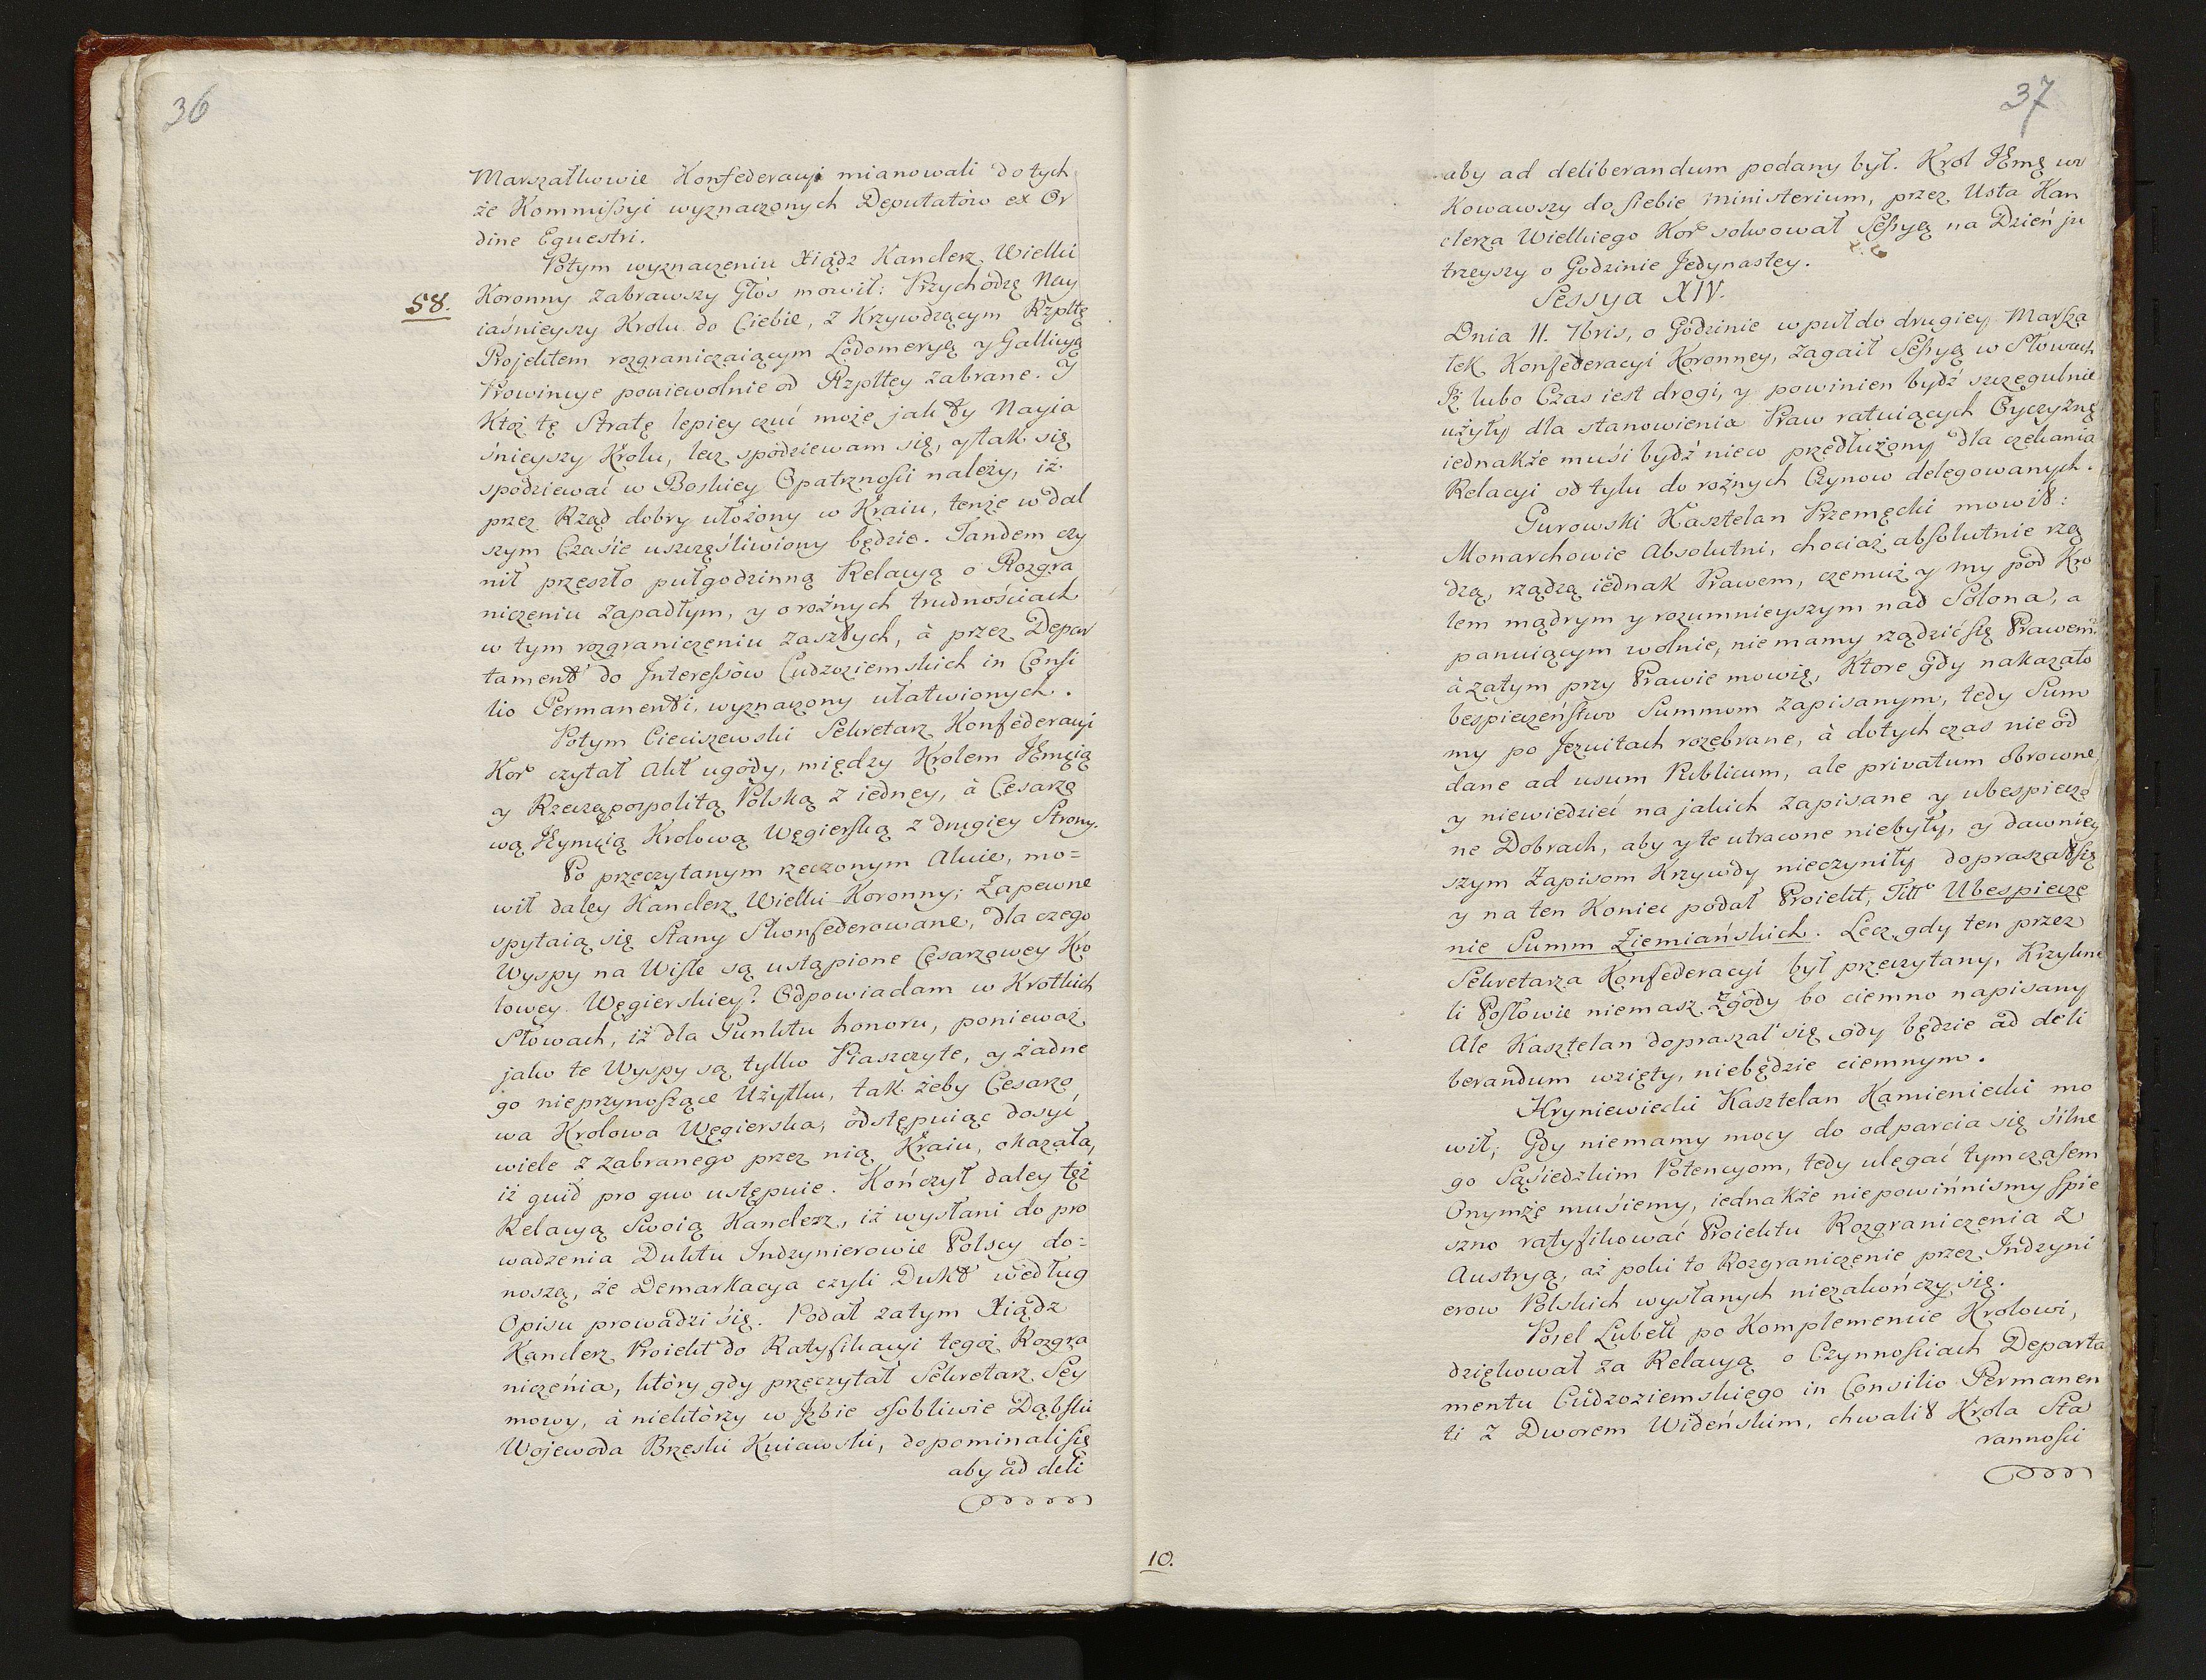 36
Marszałkowie Konfederacyi mianowali do tych
że Kommissyi wyznaczonych Deputatów ex Or
dine Equestri.
Potym wyznaczeniu Xiądz Kanclerz Wielki
58.
Koronny zabrawszy Głos mowił: Przychodzę Nay
iaśnieyszy Krolu do Ciebie, z Krzywdzącym Rzpltę
Projektem rozgraniczaiącym Lodomeryą y Gallicyą
Prowincye poniewolnie od Rzpltey zabrane. Y
Ktoż tę Stratę lepiey czuć może jak Ty Nayia
śnieyszy Krolu, lecz spodziewam się, y tak się
spodziewać w Boskiey Opatrznosci należy, iż
przez Rząd dobry ułożony w Kraiu, tenże w dal
szym Czasie uszczęśliwiony będzie. Tandem czy
nił przeszło pułgodzinną Relacyą o Rozgra
niczeniu zapadłym, y o rożnych trudnościach
w tym rozgraniczeniu zaszłych, à przez Depar
tament do Interessów Cudzoziemskich in Consi
lio Permanenti, wyznaczony ułatwionych.
Potym Cieciszewski Sekretarz Konfederacyi
Kor. czytał Akt ugody, między Krolem JEmcią
y Rzecząpospolitą Polską z iedney, à Cesarzo
wą JEymcią Krolową Węgierską z drugiey Strony.
Po przeczytanym rzeczonym Akcie, mo=
wił daley Kanclerz Wielki Koronny; Zapewne
spytaią się Stany Skonfederowane, dla czego
Wyspy na Wisle są ustąpione Cesarzowey Kro
lowey Węgierskiey? Odpowiadam w Krotkich
Słowach, iż dla Punktu honoru, ponieważ
jako te Wyspy są tylko Piaszczyte, y żadne
go nieprzynoszące Użytku, tak żeby Cesarzo
wa Krolowa Węgierska, odstępuiąc dosyć
wiele z zabranego przez nią Kraiu, okazała,
iż quid pro quo ustępuie. Kończył daley też
Relacyą Swoią Kanclerz, iż wysłani do pro
wadzenia Duktu Indzynierowie Polscy do=
noszą, że Demarkacya czyli Dukt według
Opisu prowadzi się. Podał zatym Xiądz
Kanclerz Proiekt do Ratyfikacyi tegoż Rozgra
niczenia, który gdy przeczytał Sekretarz Sey
mowy, à niektórzy w Izbie osobliwie Dąbski
Wojewoda Brzeski Kuiawski, dopominali się
aby ad deli
37
aby ad deliberandum podany był. Krol JEmć wo
kowawszy do siebie ministerium, przez Usta Kan
clerza Wielkiego Kor. solwował Sessyą na Dzień ju
trzeyszy o Godzinie Jedynastey.
Sessya XIV.
Dnia 11. 7bris, o Godzinie wpuł do drugiey Marsza
łek Konfederacyi Koronney, zagaił Sessyą w Słowach
Iż lubo Czas iest drogi, y powinien bydź szczegulnie
użyty dla stanowienia Praw ratuiących Oyczyznę
iednakże musi bydź nieco przedłużony dla czekania
Relacyi od tylu do rożnych Czynow delegowanych.
Gurowski Kasztelan Przemęcki mowił:
Monarchowie Absolutni, chociaż absolutnie rzą
dzą, rządzą iednak Prawem, czemuż y my pod Kro
lem mądrym y rozumnieyszym nad Solona, a
panuiącym wolnie, nie mamy rządzić się Prawem?
à zatym przy Prawie mowię, Ktore gdy nakazało
bespieczeństwo Summom zapisanym, tedy Sum
my po Jezuitach rozebrane, à dotych czas nie od
dane ad usum Publicum, ale privatum obrocone
y niewiedzieć na jakich zapisane y ubespieczo
ne Dobrach, aby y te utracone niebyły, y dawniey
szym Zapisom Krzywdy nieczyniły dopraszał się
y na ten Koniec podał Proiekt, Titt. Ubespiecze
nie Summ Ziemiańskich. Lecz gdy ten przez
Sekretarza Konfederacyi był przeczytany, Krzykne
li Posłowie niemasz Zgody bo ciemno napisany
Ale Kasztelan dopraszał się gdy będzie ad deli
berandum wzięty, niebędzie ciemnym.
Hryniewiecki Kasztelan Kamieniecki mo
wił; Gdy niemamy mocy do odparcia się silne
go Sąsiedzkim Potencyom, tedy ulegać tymczasem
Onymże musiemy, iednakże niepowinnismy spie
szno ratyfikować Proiektu Rozgraniczenia z
Austryą, aż poki to Rozgraniczenie przez Indzyni
erow Polskich wysłanych niezakończy się.
Poseł Lubelt po Komplemencie Krolowi,
dziękował za Relacyą o Czynnosciach Departa
mentu Cudzoziemskiego in Consilio Permanen
ti z Dworem Wideńskim, chwalił Krola Sta
rannosci
10.